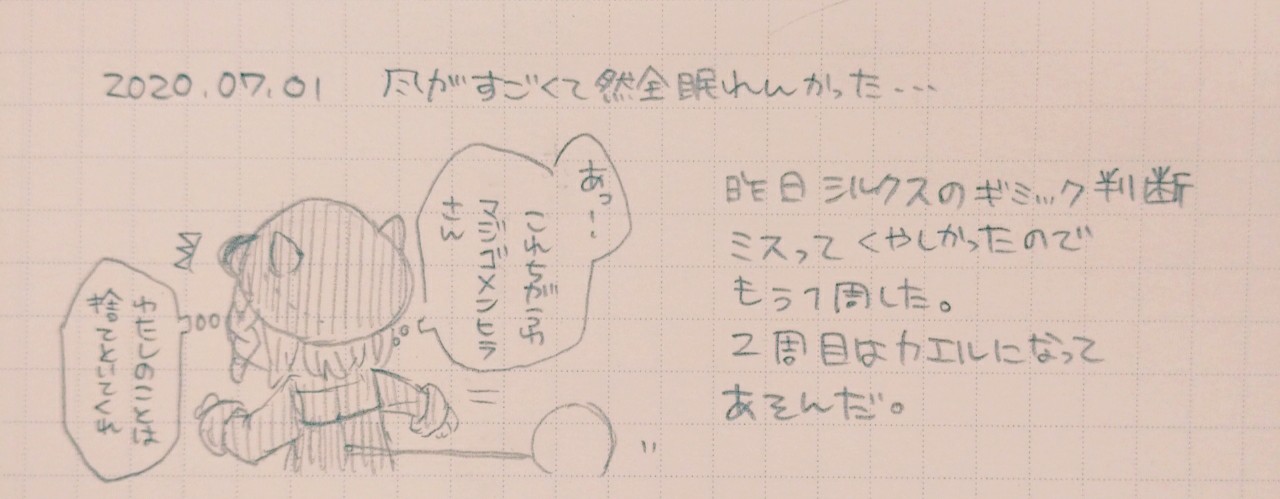 2020.07.01 風がすごくて然全眠れんかった...
あっ！
これちがう
マジゴメンヒラ
さん
のことは
捨ておいてくれ
昨日 シルクスのギミック判断
ミスって くやしかったので
もう1周した。
2周目はカエルになって
あそんだ。